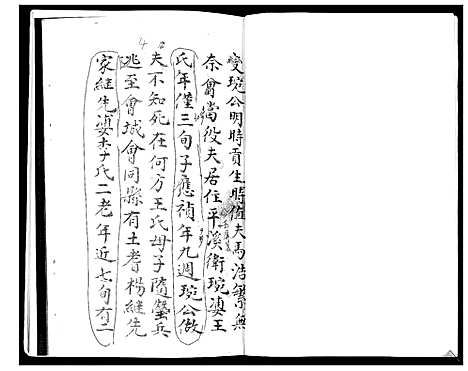 變琬公明時貢生時值夫馬浩繁無
奈會當役夫居住平溪衛琬淒王
氏年僅三旬子應禎年九週琬公做
夫不知死在何方王氏母子隨蠻兵
逃至會城會同縣有土者楊繼先
家繼先淒李氏二老年近七旬有二